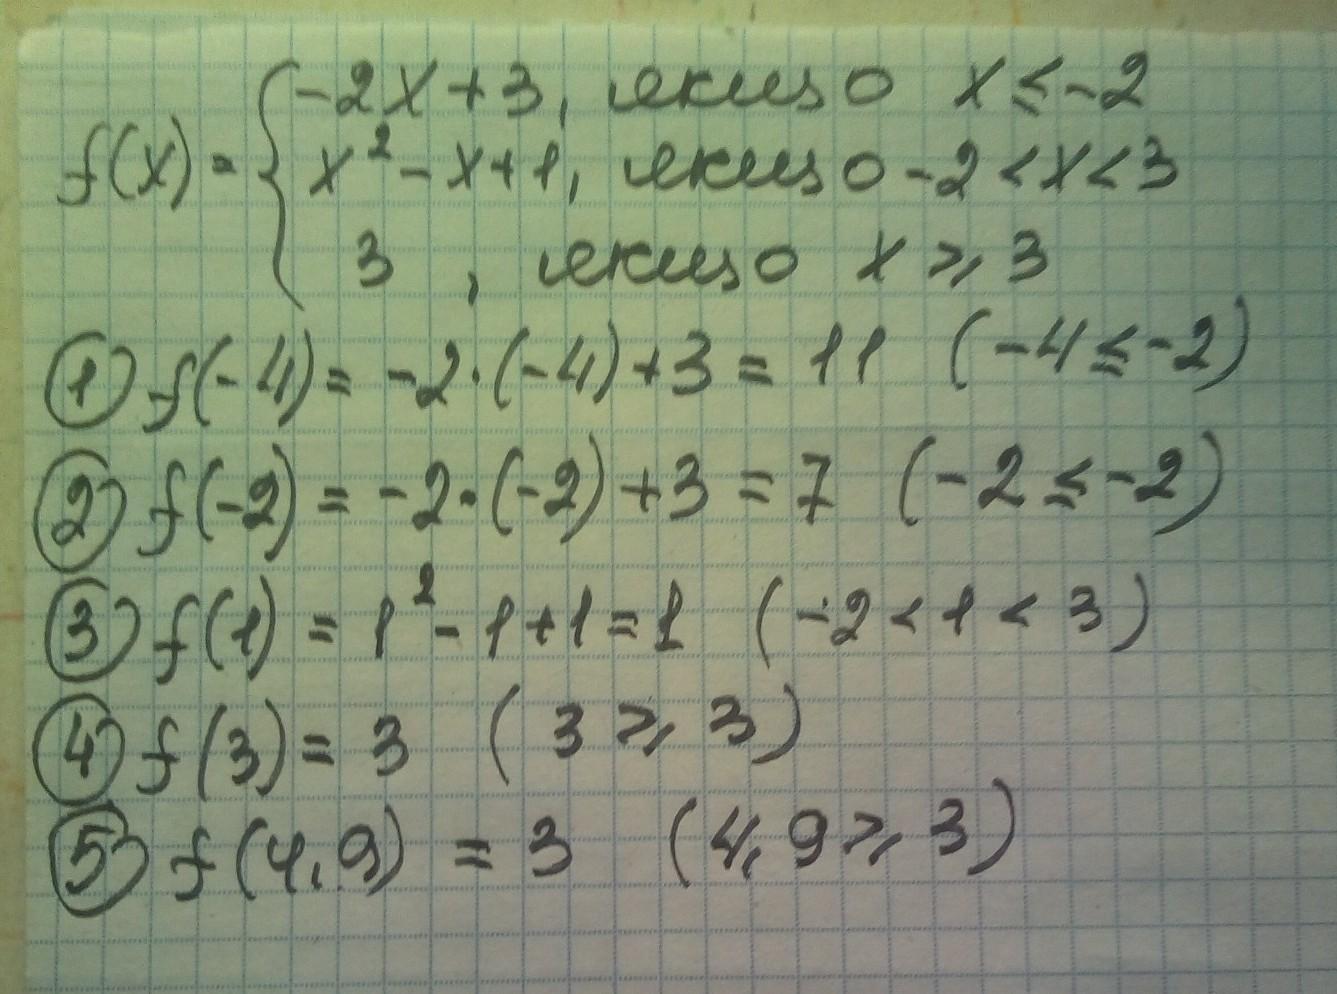 f(x) = { -2x+3, якщо x ≤ -2
x² - x+1, якщо -2 < x < 3
3, якщо x ⩾ 3
① f(-4) = -2·(-4)+3 = 11 (-4 ≤ -2)
② f(-2) = -2·(-2)+3 = 7 (-2 ≤ -2)
③ f(1) = 1² - 1+1 = 1 (-2 < 1 < 3)
④ f(3) = 3 (3 ⩾ 3)
⑤ f(4,9) = 3 (4,9 ⩾ 3)